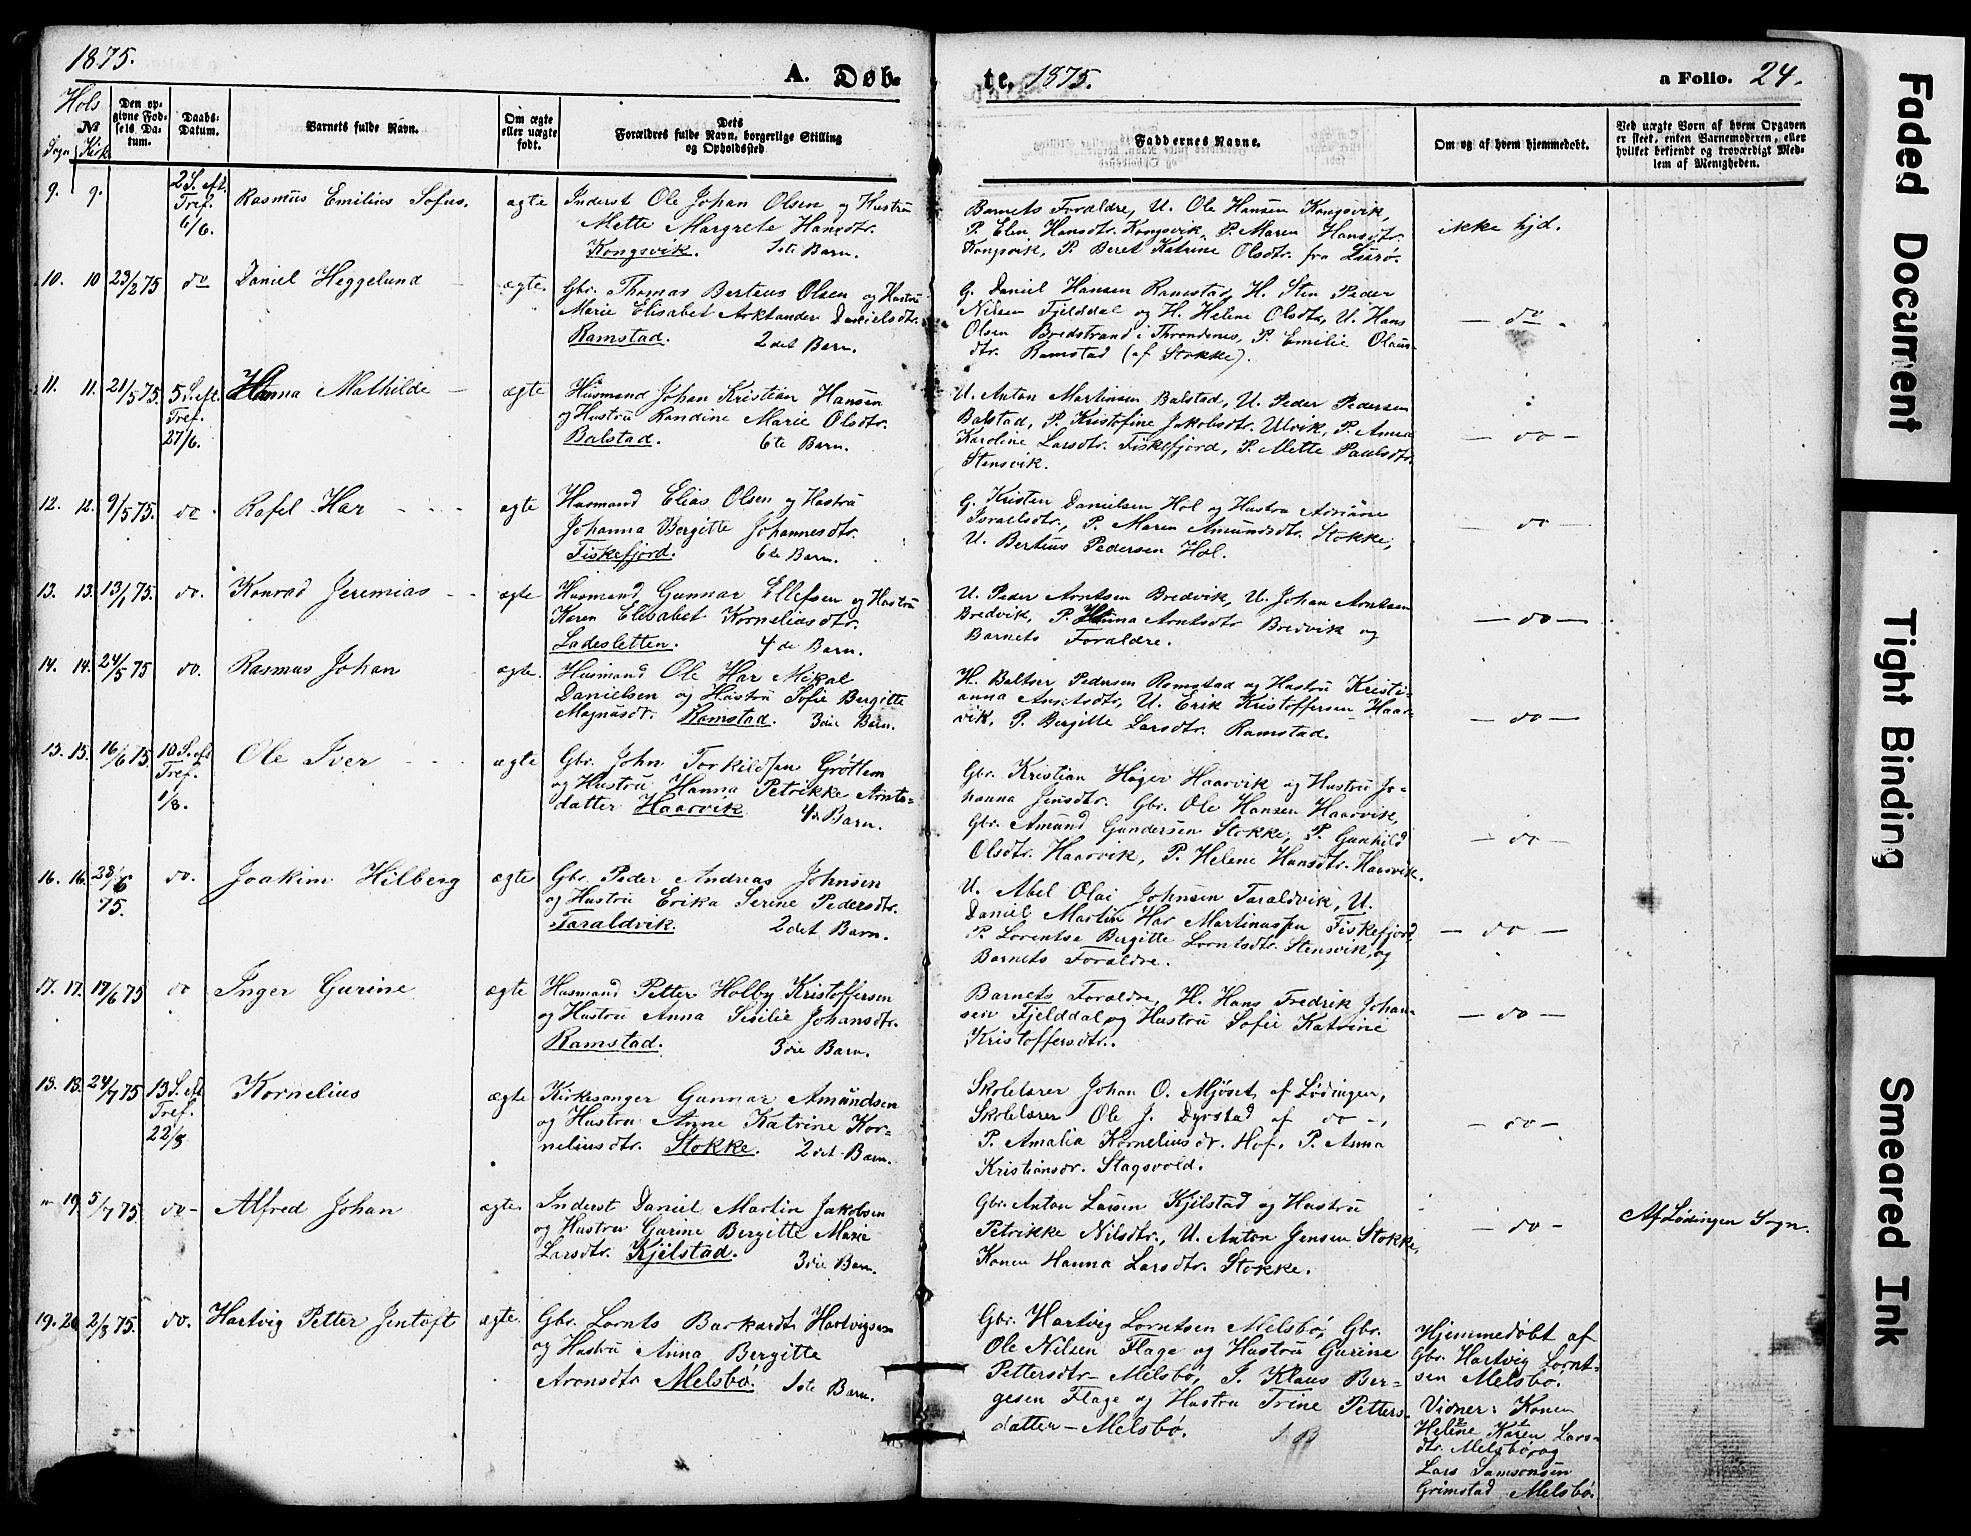 1875.
A. Døb-
te, 1875.
a Folio. 24.
Hols
№
Sogn Kirke
Den op-
givne Fød-
sels Da-
tum.
Daabs-
Datum.
Barnets fulde Navn.
Om ægte
eller uægte
født.
Dets
Forældres fulde Navn, borgerlige Stilling
og Opholdssted
Faddernes Navne.
Om og af hvem hjemmedøbt.
Ved uægte Børn af hvem Opgaven
er skeet, enten Barnemoderen, eller
hvilket bekjendt og troværdigt Med-
lem af Menigheden.
9. 9. 2 S. eft.
Tref.
6/6.
Rasmus Emilius Sofus.
ægte
Inderst Ole Johan Olsen og Hustru
Mette Margrete Hansdtr.
Kongsvik. 1ste Barn.
Barnets Forældre, U. Ole Hansen Kongsvik,
P. Elen Hansdtr. Kongsvik, P. Maren Hansdtr.
Kongsvik, P. Beret Katrine Olsdtr. fra Lurø.
ikke hjd.
10. 10 23/2 75 do Daniel Heggelund
ægte.
Gbr. Thomas Berteus Olsen og Hustru
Marie Elisabet Arktander Danielsdtr.
Ramstad. 2det Barn.
G. Daniel Hansen Ramstad, H. Sten Peder
Nilsen Fjelddal og H. Helene Olsdtr, U. Hans
Olsen Bredstrand i Throndenes, P. Emilie Olaus-
dtr. Ramstad (af Stokke).
- do -
11. 11. 21/5 75. 5 S. eft.
Tref.
27/6.
Hanna Mathilde
ægte
Husmand Johan Kristian Hansen
og Hustru Randine Marie Olsdtr.
Balstad. 6te Barn.
U. Anton Martinsen Balstad, U. Peder Pedersen
Balstad, P. Kristofine Jakobsdtr. Ulvik, P. Anna
Karoline Larsdtr. Fiskefjord, P. Mette Paulsdtr.
Stensvik.
- do -
12. 12. 9/5 75. do. Rafel Har
ægte
Husmand Elias Olsen og Hustru
Johanna Bergitte Johannesdtr.
Fiskefjord. 6te Barn.
G. Kristen Danielsen Hol og Hustru Adriane
Israelsdtr., P. Maren Amundsdtr. Stokke,
U. Berteus Pedersen Hol.
- do -
13. 13. 13/1 75. do. Konrad Jeremias
ægte
Husmand Gunnar Ellefsen og Hustru
Karen Elisabet Korneliusdtr.
Ladesletten. 4de Barn.
U. Peder Arntsen Bredvik, U. Johan Arntsen
Bredvik, P. Hanna Arntsdtr Bredvik og
Barnets Forældre.
- do -
14. 14. 24/5 75 do. Rasmus Johan
ægte.
Husmand Ole Har Mikal
Danielsen og Hustru Sofie Bergitte
Magnusdt. Ramstad. 3die Barn.
H. Baltser Pedersen Ramstad og Hustru Kristi-
anna Arntsdtr, U. Erik Kristoffersen Haar-
vik, P. Bergitte Larsdtr. Ramstad.
- do -
15. 15. 16/6 75 10 S. eft
Tref.
1/8.
Ole Iver
ægte
Gbr. John Torkildsen Grøttem
og Hustru Hanna Petrikke Arnts-
datter Haarvik 4de Barn.
Gbr. Kristian Høger Haarvik og Hustru Jo-
hanna Jensdtr. Gbr. Ole Hansen Haarvik,
Gbr. Amund Gundersen Stokke, P. Gunhild
Olsdtr. Haarvik, P. Helene Hansdtr. Haarvik.
- do -
16. 16. 23/6
75.
do. Joakim Hilberg
ægte
Gbr. Peder Andreas Johnsen
og Hustru Erika Serine Pedersdtr.
Taraldvik. 2det Barn.
U. Abel Olai Johnsen Taraldvik, U.
Daniel Martin Har Martinussen Fiskefjord,
P. Lorentse Bergitte Lorntsdtr. Stensvik, og
Barnets Forældre.
- do -
17. 17. 17/6 75 do Inger Gurine
ægte
Husmand Petter Holby Kristoffersen
og Hustru Anna Sesilie Johansdtr.
Ramstad. 3die Barn.
Barnets Forældre, H. Hans Fredrik Johan-
sen Fjelddal og Hustru Sofie Katrine
Kristoffersdtr.
- do -
18. 18. 24/7 75 13 S. eft
Tref.
22/8
Kornelius
ægte
Kirkesanger Gunnar Amundsen
og Hustru Anne Katrine Kor-
neliusdtr. Stokke. 2det Barn.
Skolelærer Johan O. Mjøset af Lødingen,
Skolelærer Ole J. Dyrstad af do -,
P. Amalia Korneliusdr. Hof, P. Anna
Kristiansdr. Stagsvold.
- do -
" 19. 5/7 75. do - Alfred Johan
ægte.
Inderst Daniel Martin Jakobsen
og Hustru Gurine Bergitte Marie
Larsdtr. Kjelstad. 3die Barn.
Gbr. Anton Larsen Kjelstad og Hustru
Petrikke Nilsdtr., U. Anton Jensen Stokke,
Konen Hanna Larsdtr. Stokke.
- do -
Af Lødingen Sogn.
19. 20 2/8 75. do. Hartvig Petter Jentoft
ægte.
Gbr. Lornts Barkardt Hartvigsen
og Hustru Anna Bergitte
Aronsdtr Melsbø. 1ste Barn.
Gbr. Hartvig Lorntsen Melsbø, Gbr.
Ole Nilsen Flage og Hustru Gurine
Pettersdtr- Melsbø, I. Klaus Ber-
gesen Flage og Hustru Trine Petters-
datter - Melsbø.
Hjemmedøbt af
Gbr. Hartvig Lornt-
sen Melsbø.
Vidner: Konen
Helene Karen Lars-
dtr. Melsbø, og
Lars Samsonsen
Grimstad Melsbø.
Faded Document
Tight Binding
Smeared Ink